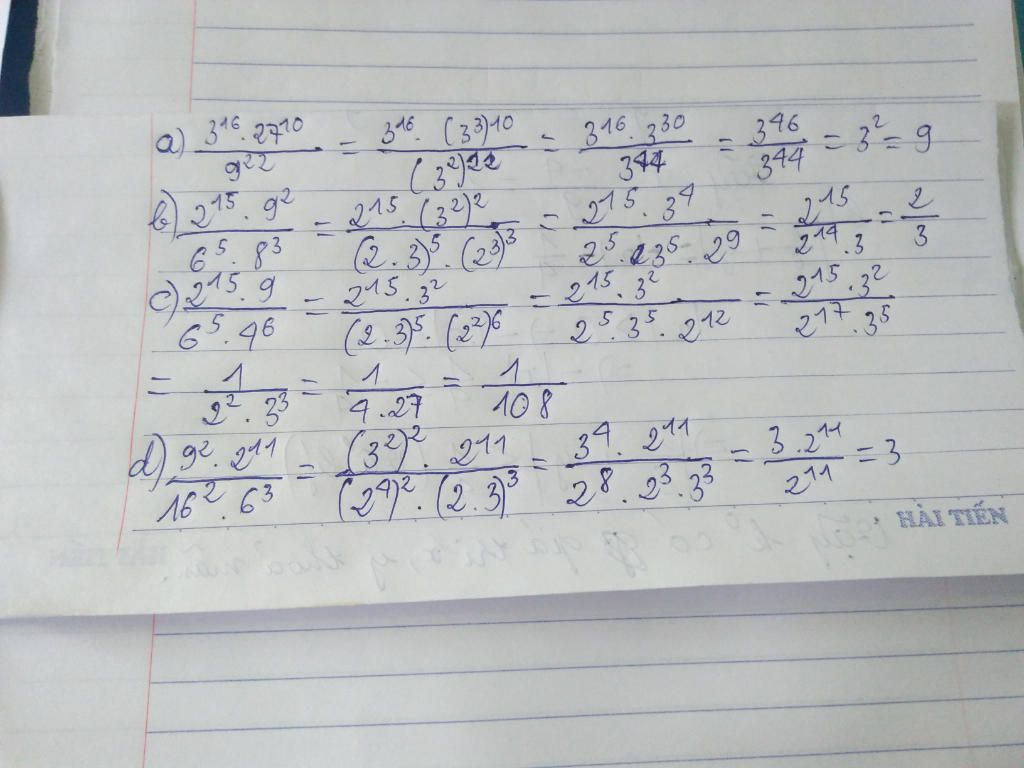 a) 3^16 . 27^10 / 9^22 = 3^16 . (3^3)^10 / (3^2)^22 = 3^16 . 3^30 / 3^44 = 3^46 / 3^44 = 3^2 = 9
b) 2^15 . 9^2 / 6^5 . 8^3 = 2^15 . (3^2)^2 / (2.3)^5 . (2^3)^3 = 2^15 . 3^4 / 2^5 . 3^5 . 2^9 = 2^15 / 2^14 . 3 = 2 / 3
c) 2^15 . 9 / 6^5 . 4^6 = 2^15 . 3^2 / (2.3)^5 . (2^2)^6 = 2^15 . 3^2 / 2^5 . 3^5 . 2^12 = 2^15 . 3^2 / 2^17 . 3^5
= 1 / 2^2 . 3^3 = 1 / 4 . 27 = 1 / 108
d) 9^2 . 2^11 / 16^2 . 6^3 = (3^2)^2 . 2^11 / (2^4)^2 . (2.3)^3 = 3^4 . 2^11 / 2^8 . 2^3 . 3^3 = 3 . 2^11 / 2^11 = 3
HẢI TIẾN